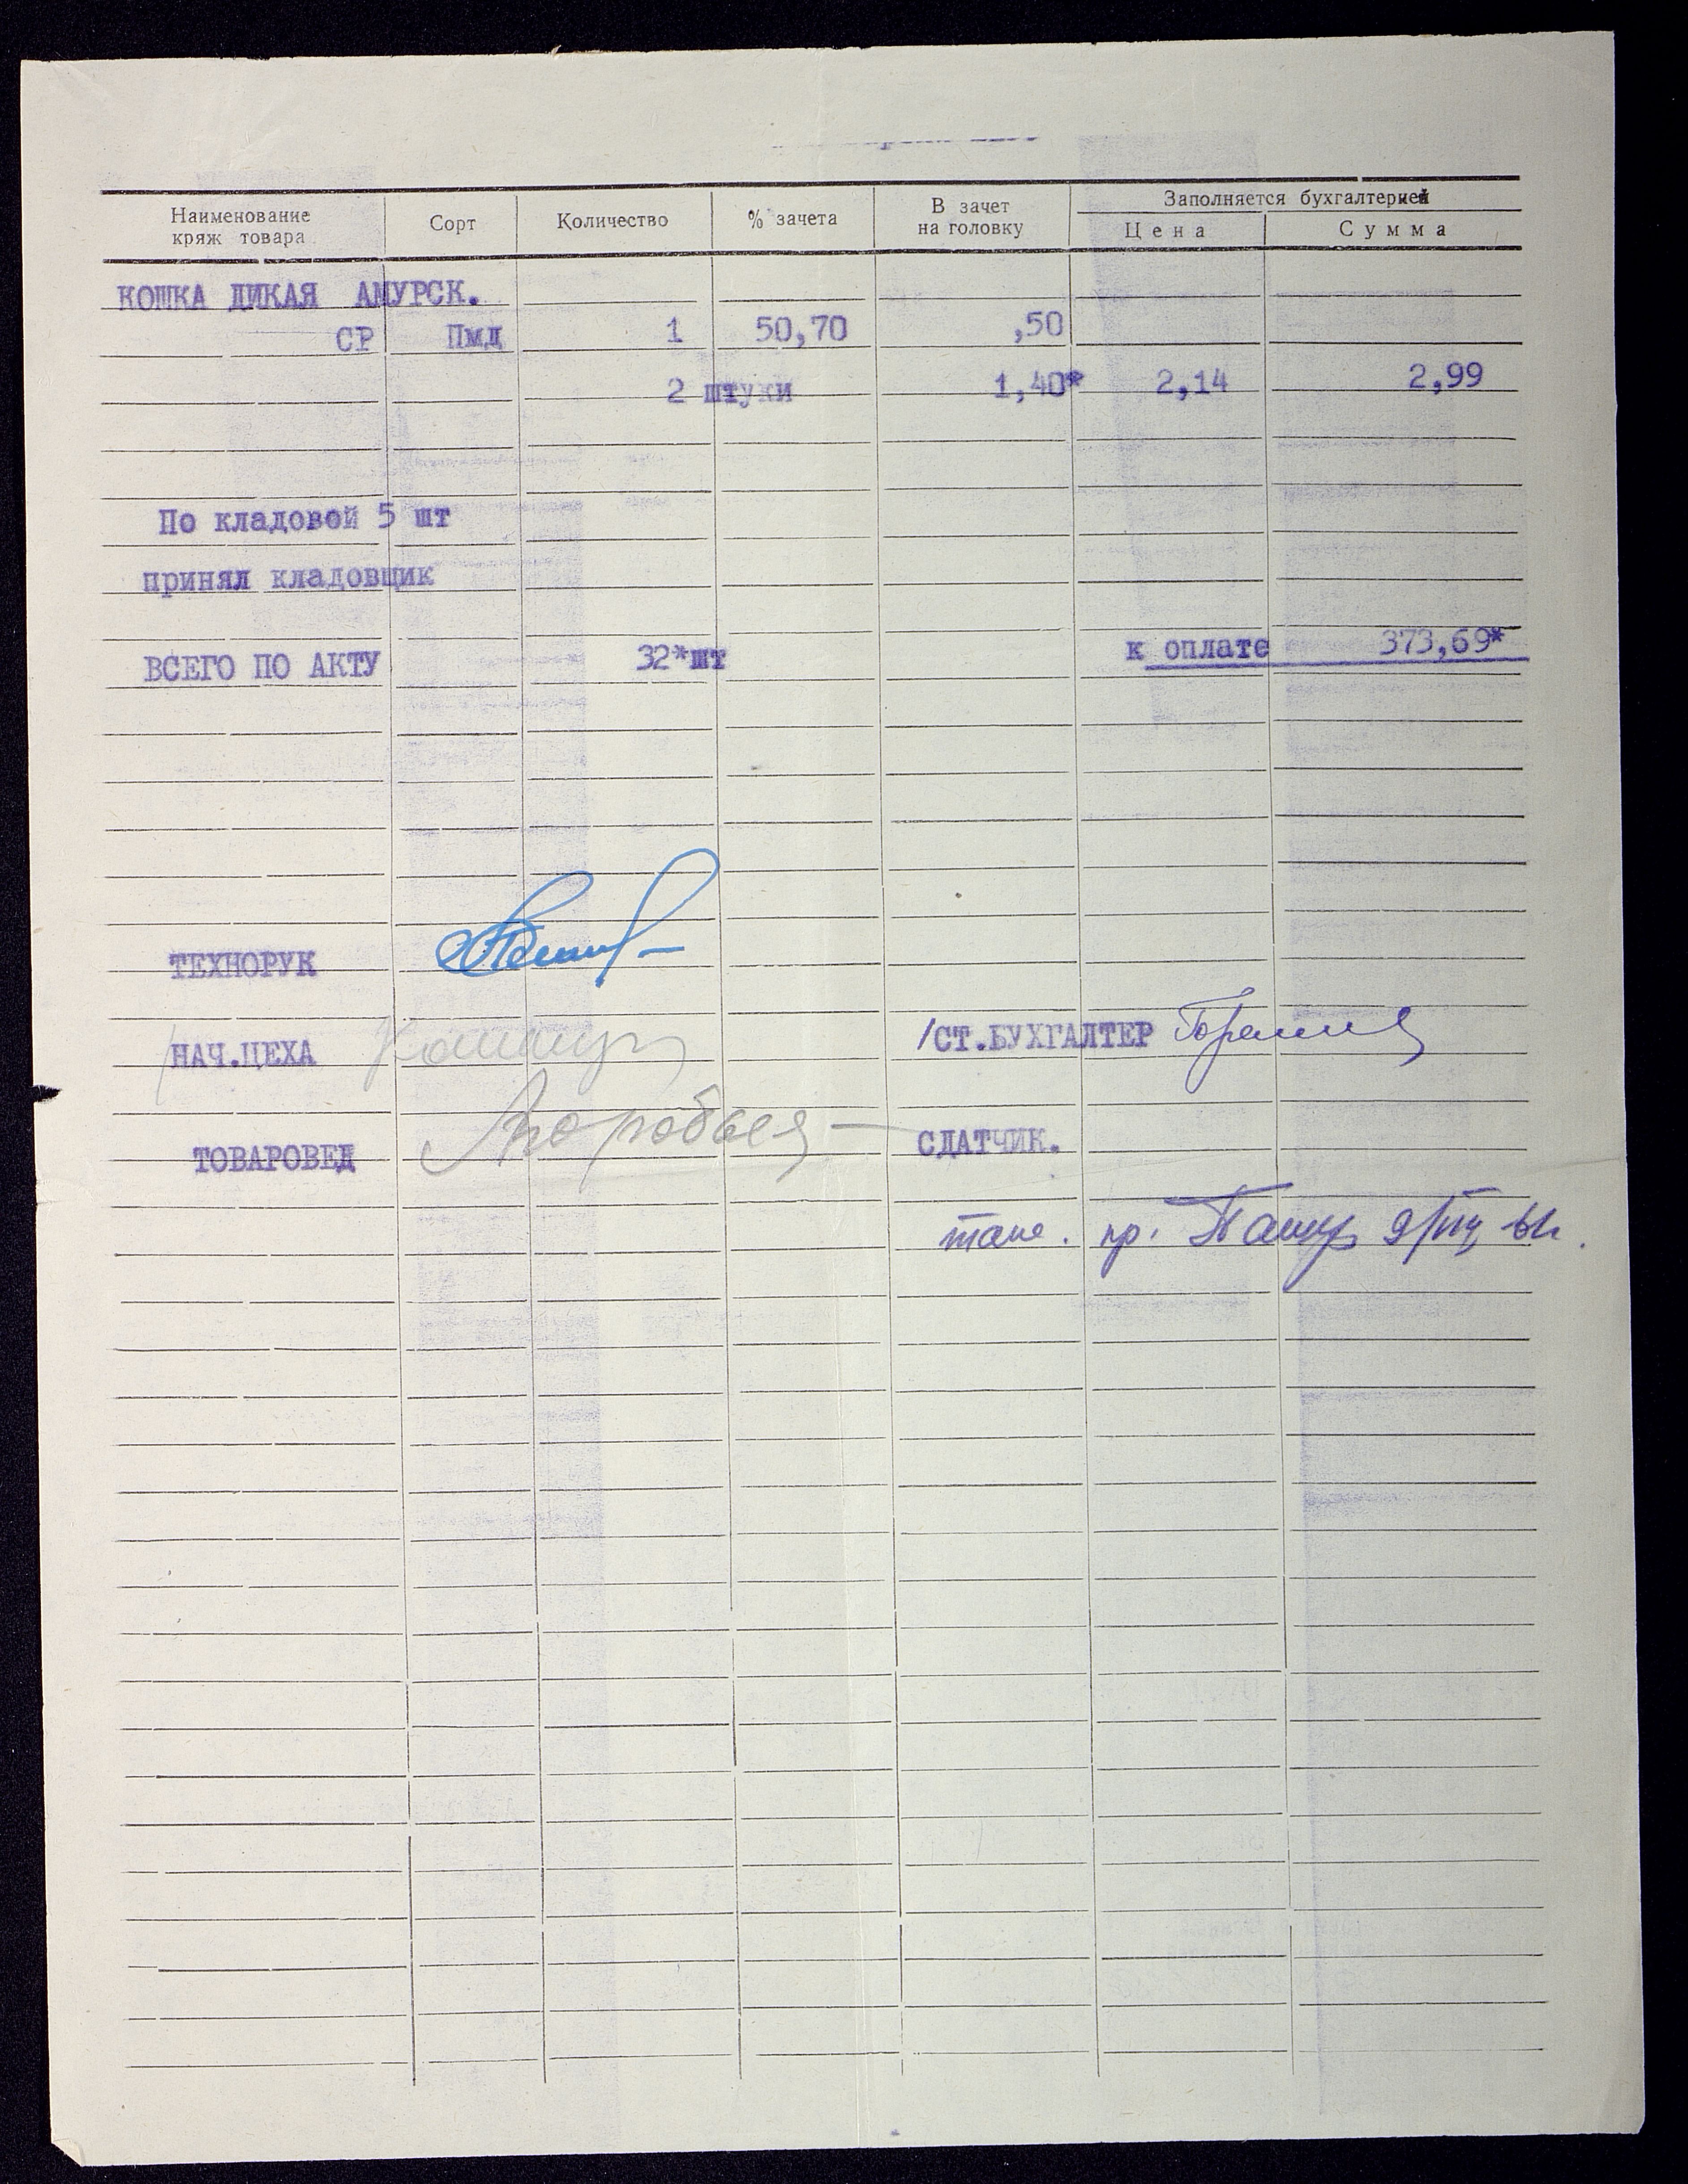 Наименование кряж товара Сорт Количество % зачета В зачет на головку Заполняется бухгалтерией
Цена Сумма
КОШКА ДИКАЯ АМУРСК.
СР Пмд 1 50,70 ,50
2 штуки 1,40* 2,14 2,99
По кладовой 5 шт
принял кладовщик
ВСЕГО ПО АКТУ 32*шт к оплате 373,69*
ТЕХНОРУК
/НАЧ.ЦЕХА /СТ.БУХГАЛТЕР
ТОВАРОВЕД СДАТЧИК.
пр.